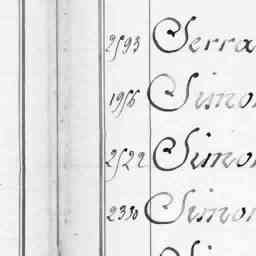 2593 Serra
1956 Simo
2522 Simo
2330 Simo